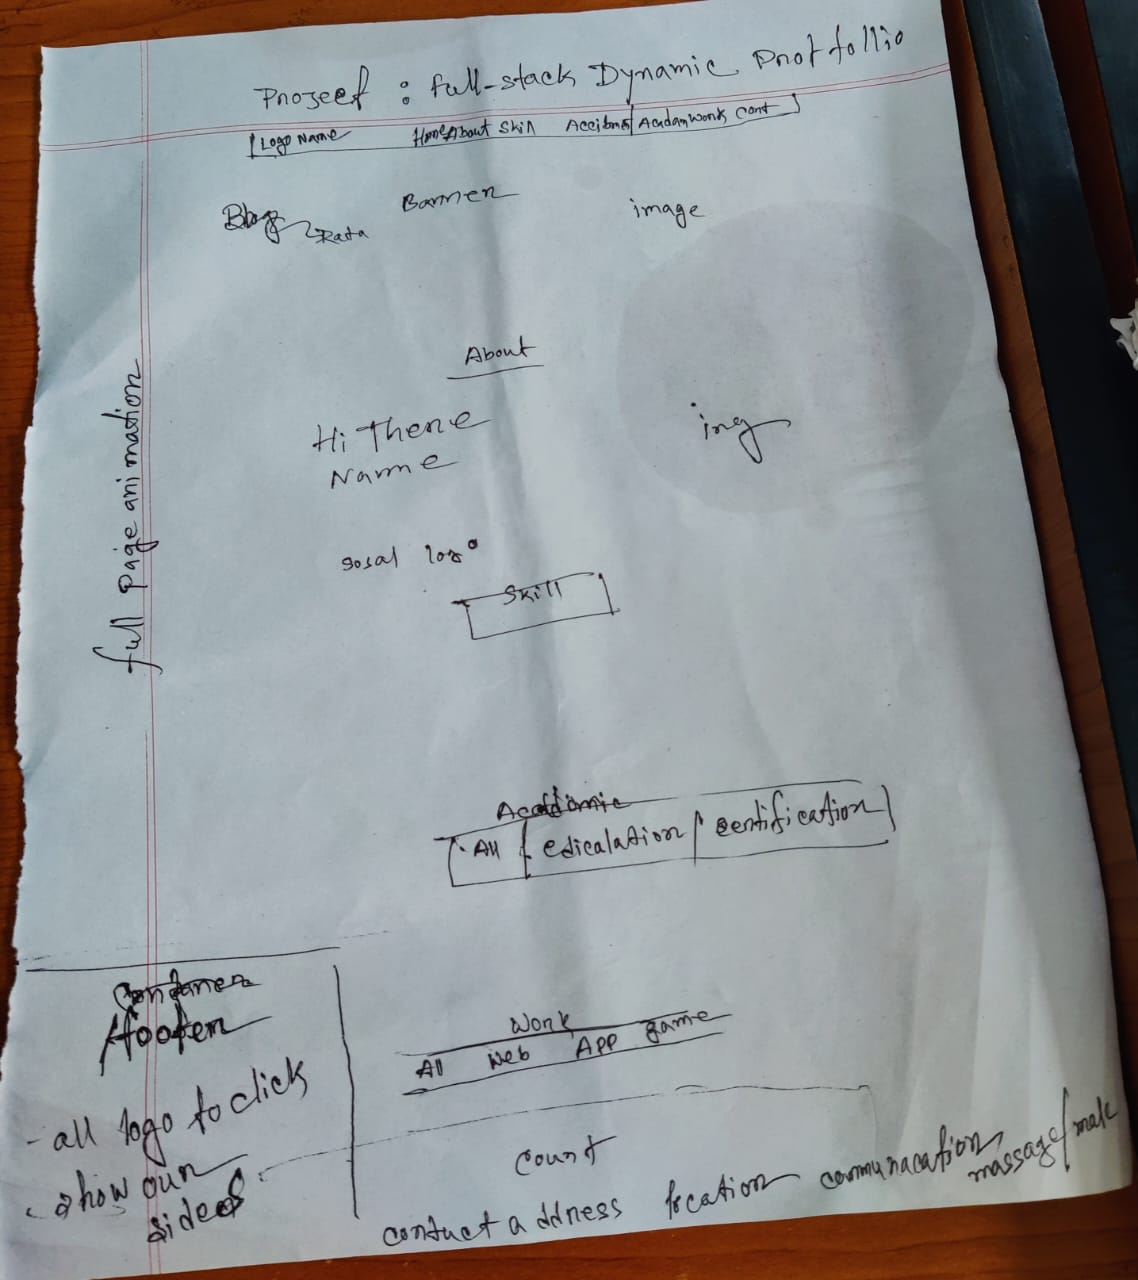 Project : full-stack Dynamic Protfollio
Logo Name Home About Skill Academ work Cont
Blog Banner image
About
Hi There ing
Name
sosal logo
Skill
Academic
All edicalation certification
Work
All Web App game
Count
conduct address location communacation massage/male
full page animation
Footer
- all logo to click
- show our
sides